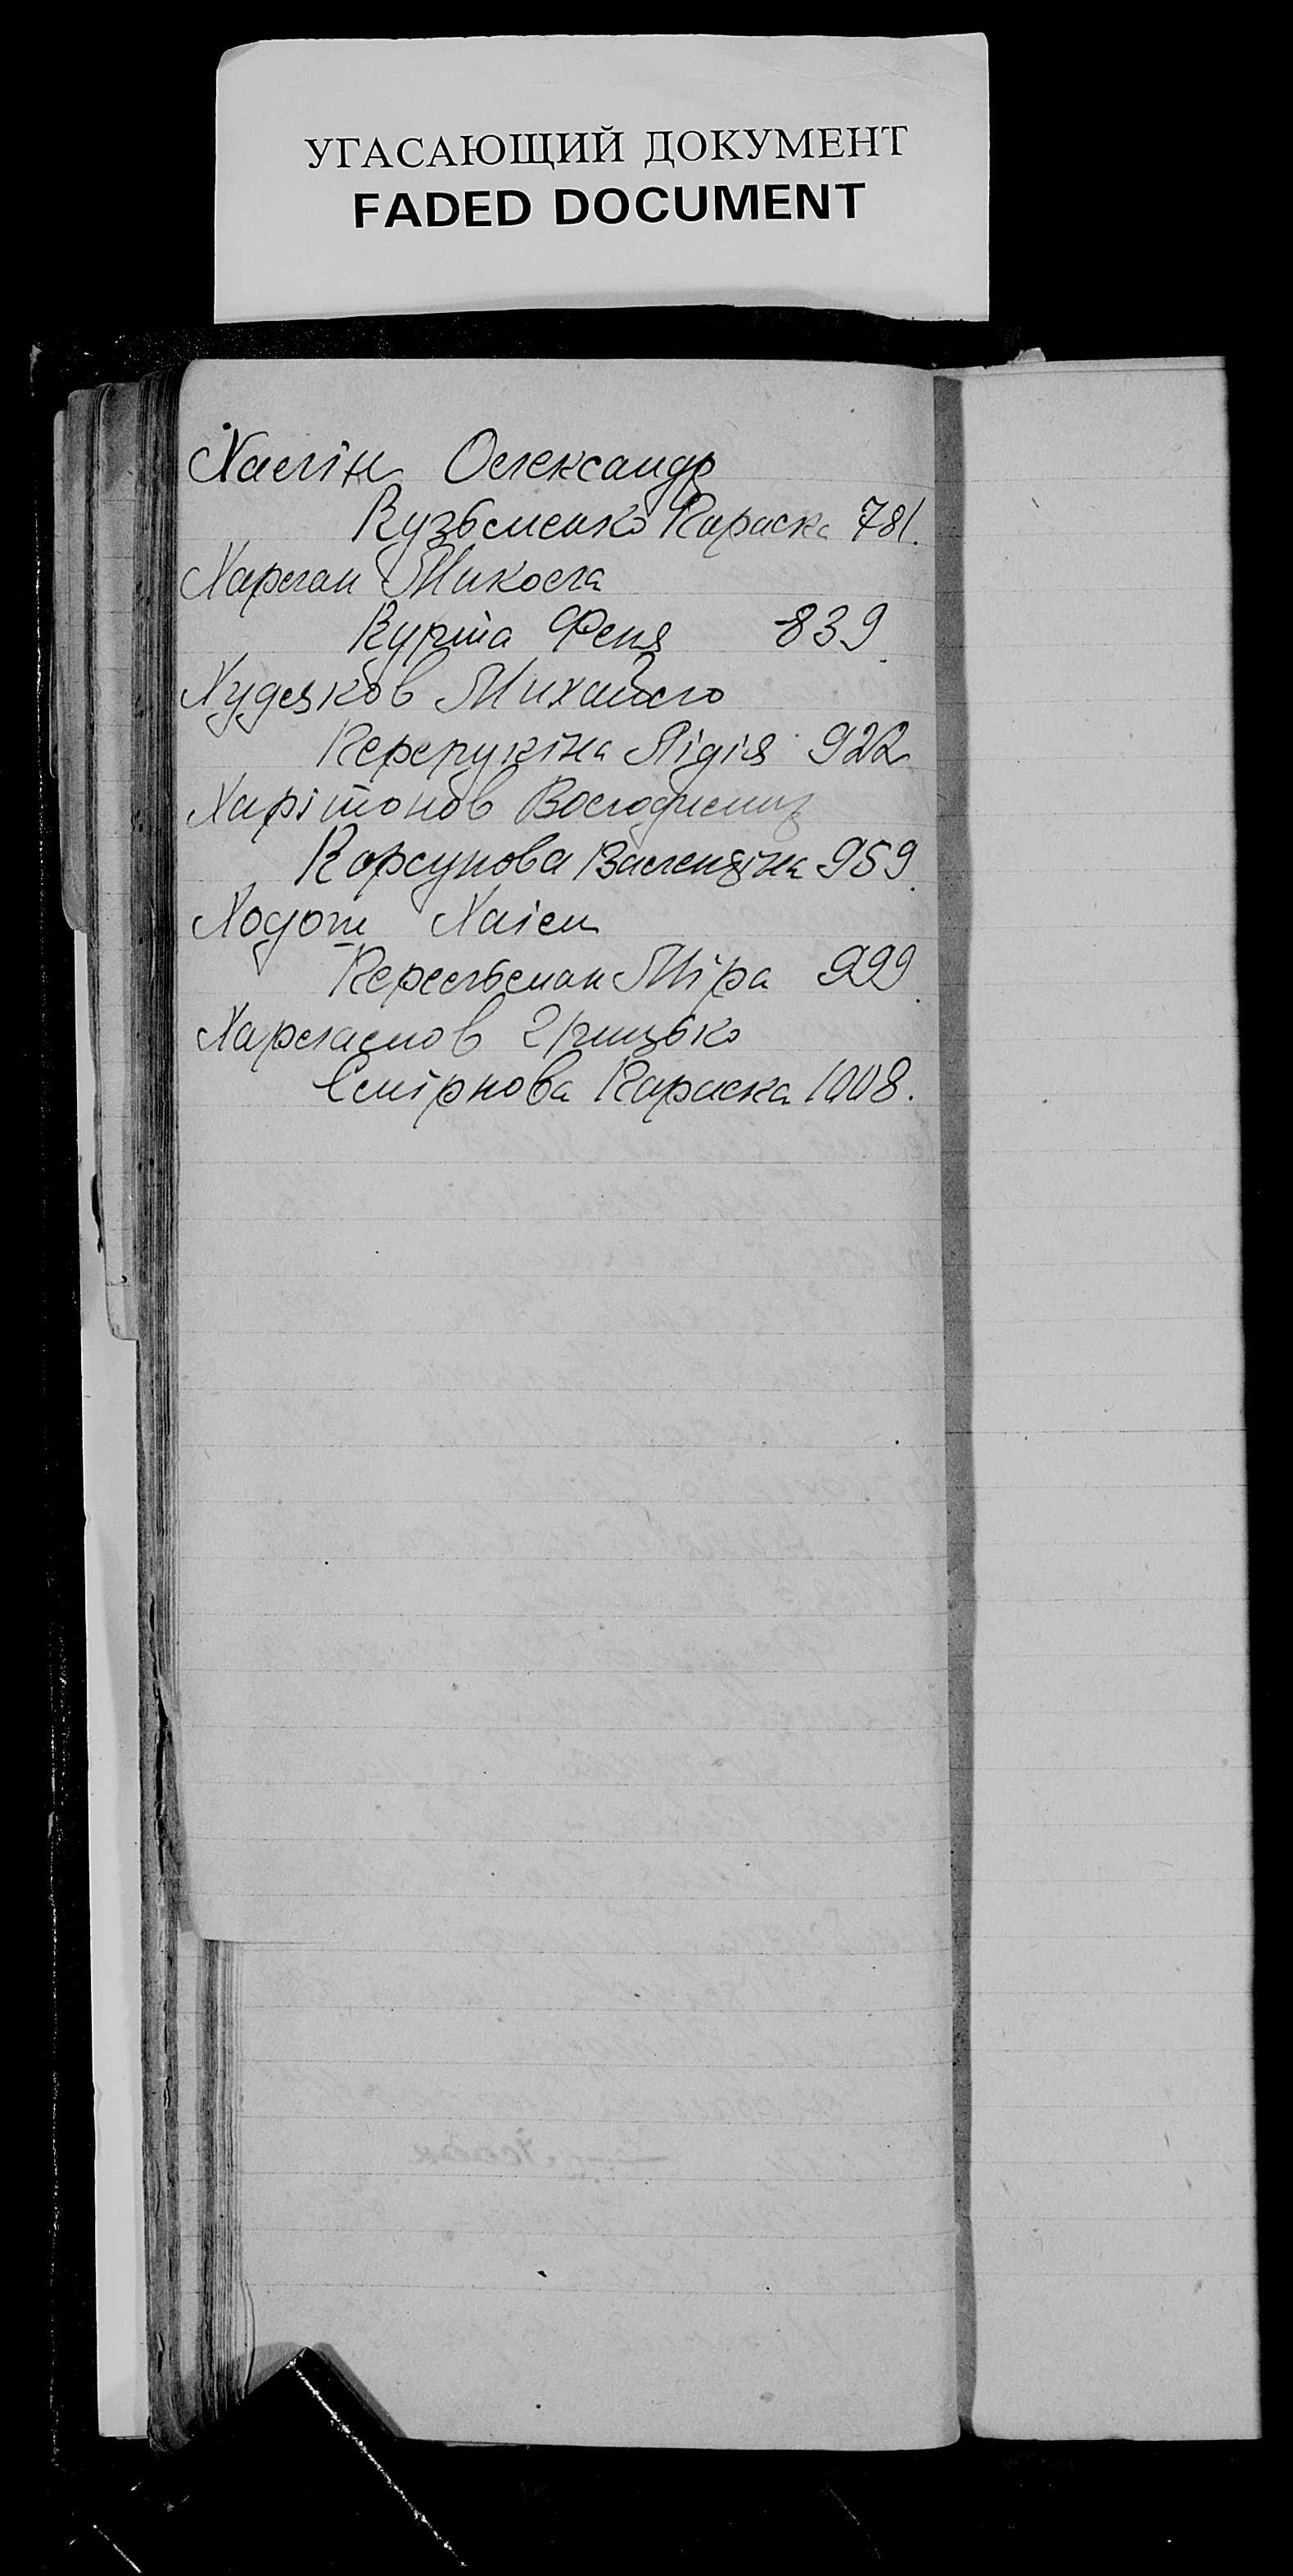 УГАСАЮЩИЙ ДОКУМЕНТ
FADED DOCUMENT
Халін Олександр
Кузьменко Параска 781.
Харлан Микола
Курта Феня 839
Худяков Михайло
Перепукіна Лідія 922
Харітонов Володимир
Корсунова Валентіна 959
Ходот Хаім
Перельман Міра 999
Харламов Грицько
Смірнова Параска 1008.